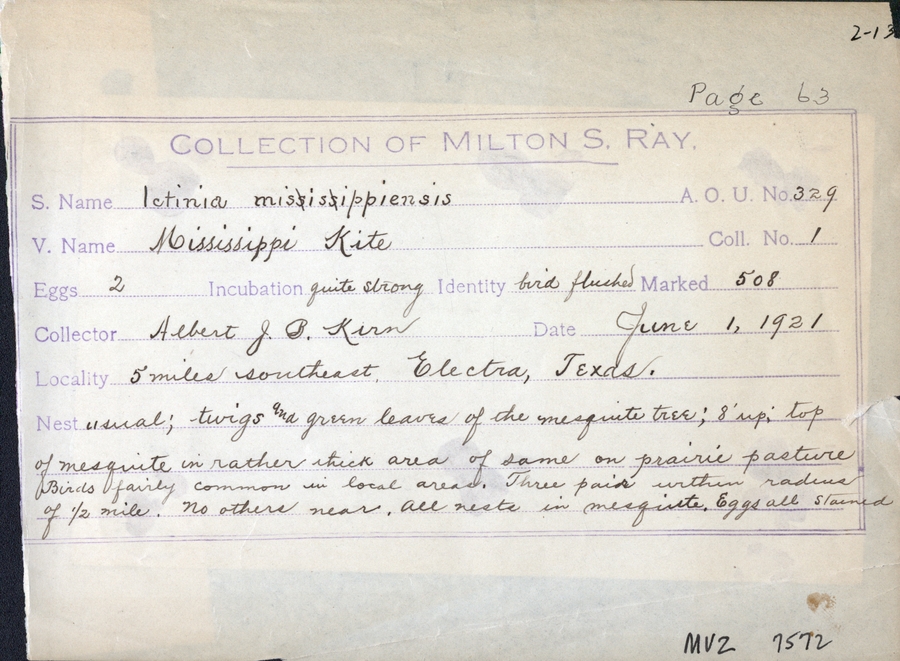 2-13
Page 63
COLLECTION OF MILTON S. RAY.
S. Name Ictinia missisippiensis A. O. U. No. 329
V. Name Mississippi Kite Coll. No. 1
Eggs 2 Incubation quite strong Identity bird flushed Marked 508
Collector Albert J. B. Kirn Date June 1, 1921
Locality 5 miles southeast, Electra, Texas.
Nest usual; twigs and green leaves of the mesquite tree; 8' up; top
of mesquite in rather thick area of same on prairie pasture
Birds fairly common in local areas. Three pair within radius
of 1/2 mile. No others near. All nests in mesquite. Eggs all stained
MVZ 7572